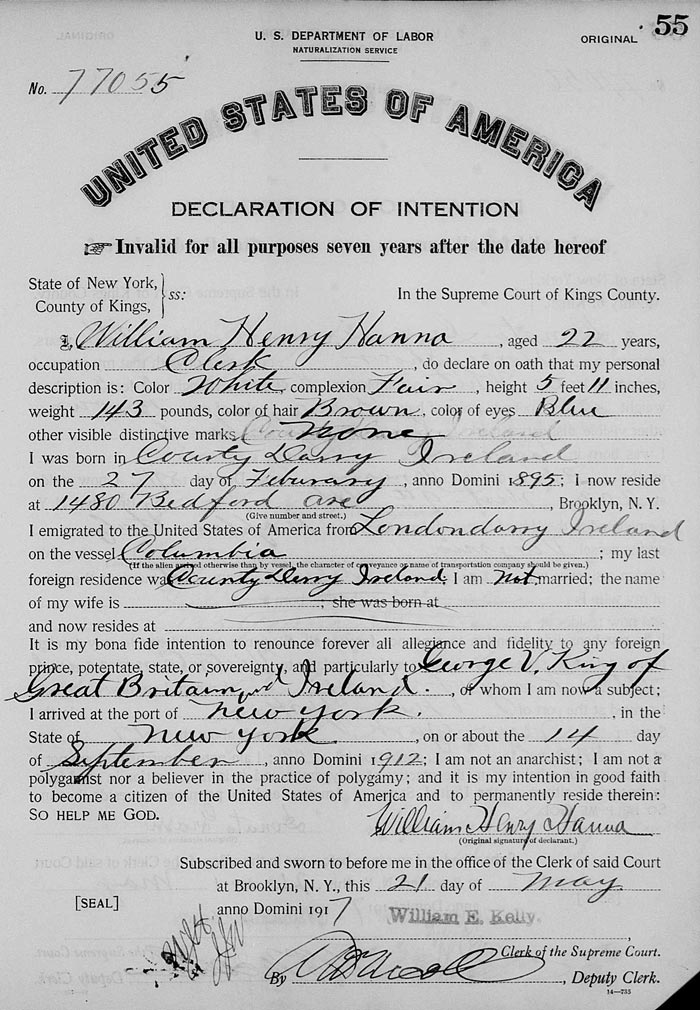 55
U. S. DEPARTMENT OF LABOR
NATURALIZATION SERVICE
ORIGINAL
No. 77055
UNITED STATES OF AMERICA
DECLARATION OF INTENTION
☞ Invalid for all purposes seven years after the date hereof
State of New York,
County of Kings, } ss:
In the Supreme Court of Kings County.
I, William Henry Hanna, aged 22 years,
occupation Clerk, do declare on oath that my personal
description is: Color White, complexion Fair, height 5 feet 11 inches,
weight 143 pounds, color of hair Brown, color of eyes Blue
other visible distinctive marks None
I was born in County Derry Ireland
on the 27 day of Feburary, anno Domini 1895; I now reside
at 1480 Bedford ave, Brooklyn, N. Y.
(Give number and street.)
I emigrated to the United States of America from Londondarry Ireland
on the vessel Columbia; my last
(If the alien arrived otherwise than by vessel, the character of conveyance or name of transportation company should be given.)
foreign residence was County Derry Ireland; I am not married; the name
of my wife is ; she was born at
and now resides at
It is my bona fide intention to renounce forever all allegiance and fidelity to any foreign
prince, potentate, state, or sovereignty, and particularly to George V, King of
Great Britain and Ireland, of whom I am now a subject;
I arrived at the port of new york, in the
State of new york, on or about the 14 day
of September, anno Domini 1912; I am not an anarchist; I am not a
polygamist nor a believer in the practice of polygamy; and it is my intention in good faith
to become a citizen of the United States of America and to permanently reside therein:
SO HELP ME GOD.
William Henry Hanna
(Original signature of declarant.)
Subscribed and sworn to before me in the office of the Clerk of said Court
at Brooklyn, N. Y., this 21 day of may
[SEAL]
anno Domini 1917
William E. Kelly.
Clerk of the Supreme Court.
By , Deputy Clerk.
14—735